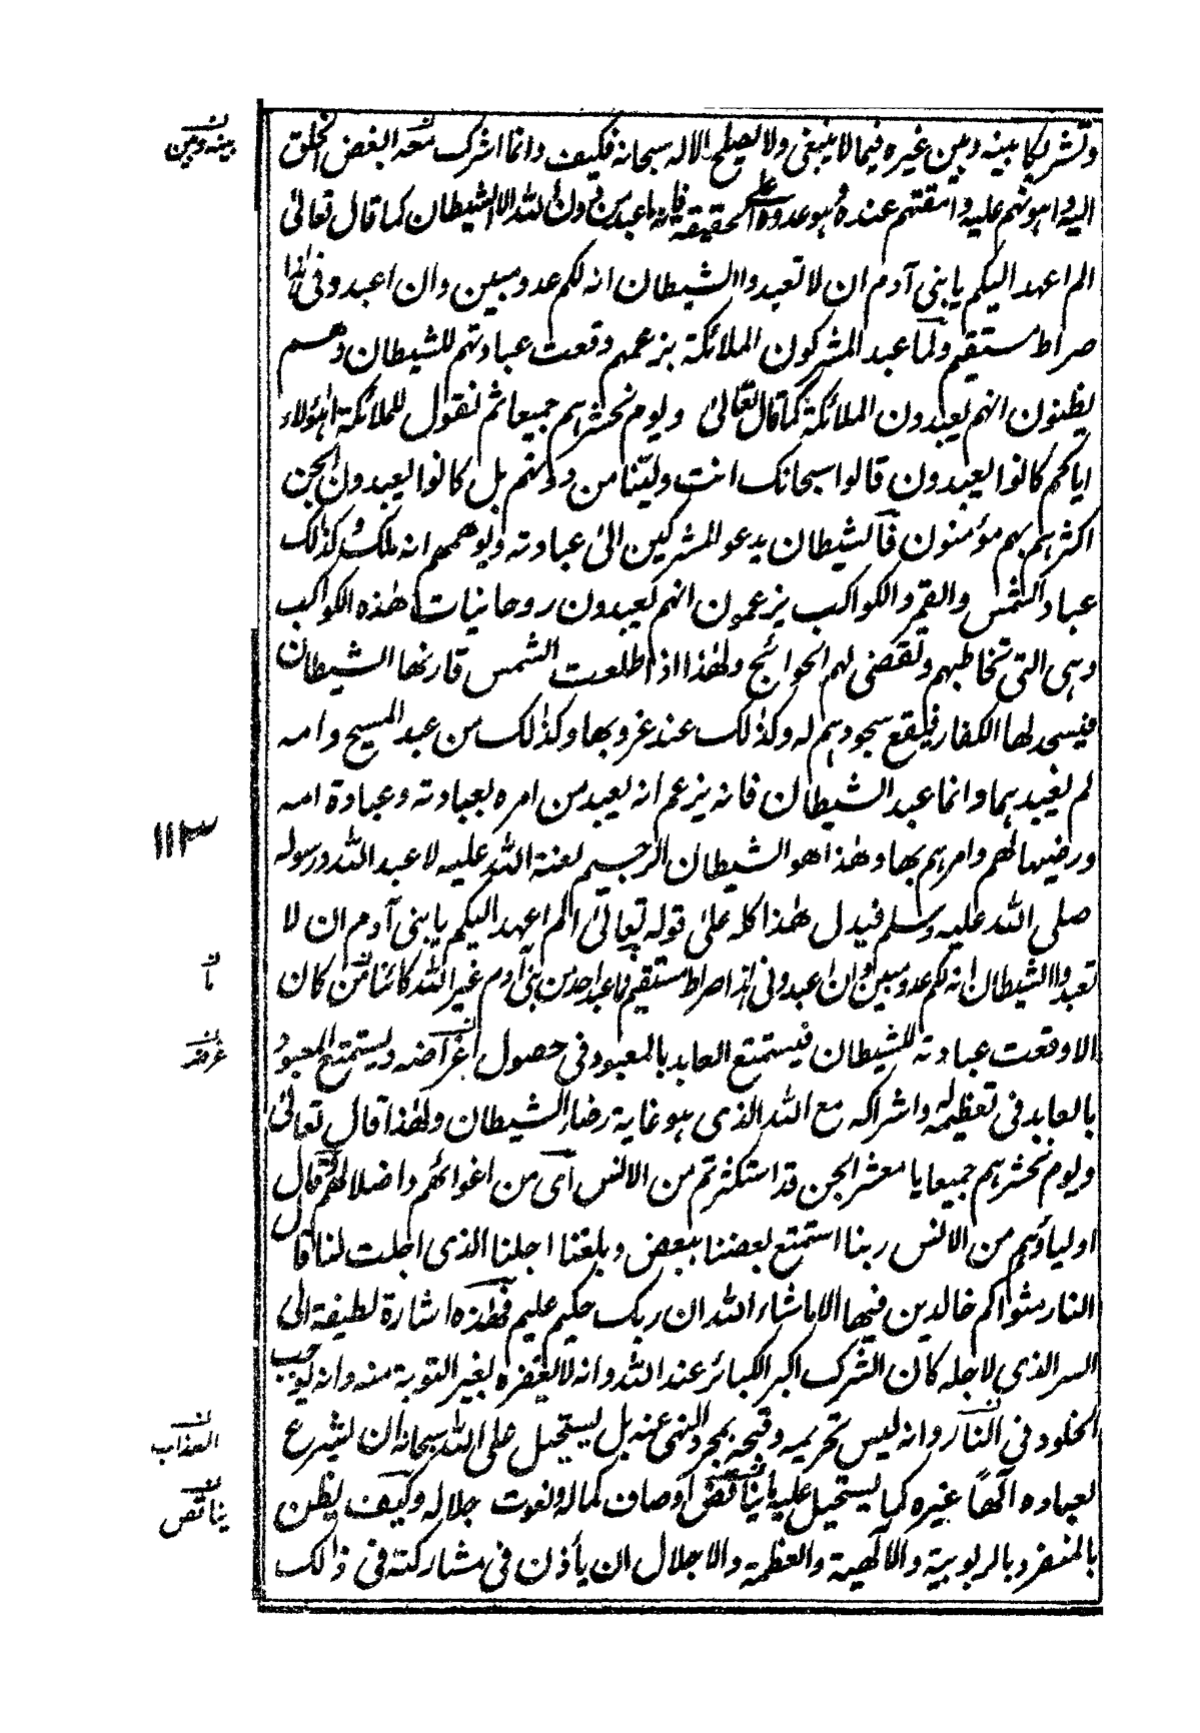 وتشريكا بينه وبين غيره فيما لا ينبغي ولا يصلح الا له سبحانه فكيف وانما اشرك معه ابغض الخلق
بينه وبين
اليه واهونهم عليه وامقتهم عنده وهو عدوه على الحقيقة فانه ما عبد من دون الله الا الشيطان كما قال تعالىٰ
الم اعهد اليكم يا بنى آدم ان لا تعبدوا الشيطان انه لكم عدو مبين وان اعبدونى هٰذا
صراط مستقيم ولما عبد المشركون الملائكة بزعمهم وقعت عبادتهم للشيطان وهم
يظنون انهم يعبدون الملائكة كما قال تعالىٰ ويوم نحشرهم جميعا ثم نقول للملائكة اهٰؤلاء
اياكم كانوا يعبدون قالوا سبحانك انت ولينا من دونهم بل كانوا يعبدون الجن
اكثرهم بهم مؤمنون فالشيطان يدعو المشركين الىٰ عبادته ويوهمهم انه ملك وكذٰلك
عباد الشمس والقمر والكواكب يزعمون انهم يعبدون روحانيات هٰذه الكواكب
وهى التى تخاطبهم وتقضى لهم الحوائج ولهٰذا اذا طلعت الشمس قارنها الشيطان
فيسجد لها الكفار فيقع سجودهم له وكذٰلك عند غروبها وكذٰلك من عبد المسيح وامه
لم يعبدهما وانما عبد الشيطان فانه يزعم انه يعبد من امره بعبادته وعبادة امه
١١٣
ورضيها لهم وامرهم بها وهٰذا هو الشيطان الرجيم لعنة الله عليه لا عبد الله ورسوله
صلى الله عليه وسلم فيدل هٰذا كله علىٰ قوله تعالىٰ الم اعهد اليكم يا بنى آدم ان لا
تعبدوا الشيطان انه لكم عدو مبين وان اعبدونى هٰذا صراط مستقيم فما عبد احد من بنى آدم غير الله كائنا من كان
ما
الا وقعت عبادته للشيطان فيستمتع العابد بالمعبود فى حصول اغراضه ويستمتع المعبود
غرضه
بالعابد فى تعظيمه له واشراكه مع الله الذى هو غاية رضاء الشيطان ولهٰذا قال تعالىٰ
ويوم نحشرهم جميعا يا معشر الجن قد استكثرتم من الانس اى من اغوائهم واضلالهم وقال
اولياؤهم من الانس ربنا استمتع بعضنا ببعض وبلغنا اجلنا الذى اجلت لنا قال
النار مثواكم خالدين فيها الا ما شاء الله ان ربك حكيم عليم فهٰذه اشارة لطيفة الى
السر الذى لاجله كان الشرك اكبر الكبائر عند الله وانه لا يغفره بغير التوبة منه وانه يوجب
الخلود فى النار وانه ليس تحريمه وقبحه بمجرد النهى عنه بل يستحيل على الله سبحانه ان يشرع
العذاب
لعباده آلٰهاً غيره كما يستحيل عليه ما يناقض اوصاف كماله ونعوت جلاله وكيف يظن
يناقص
بالمنفرد بالربوبية والآلٰهية والعظمة والاجلال ان ياذن فى مشاركته فى ذٰلك